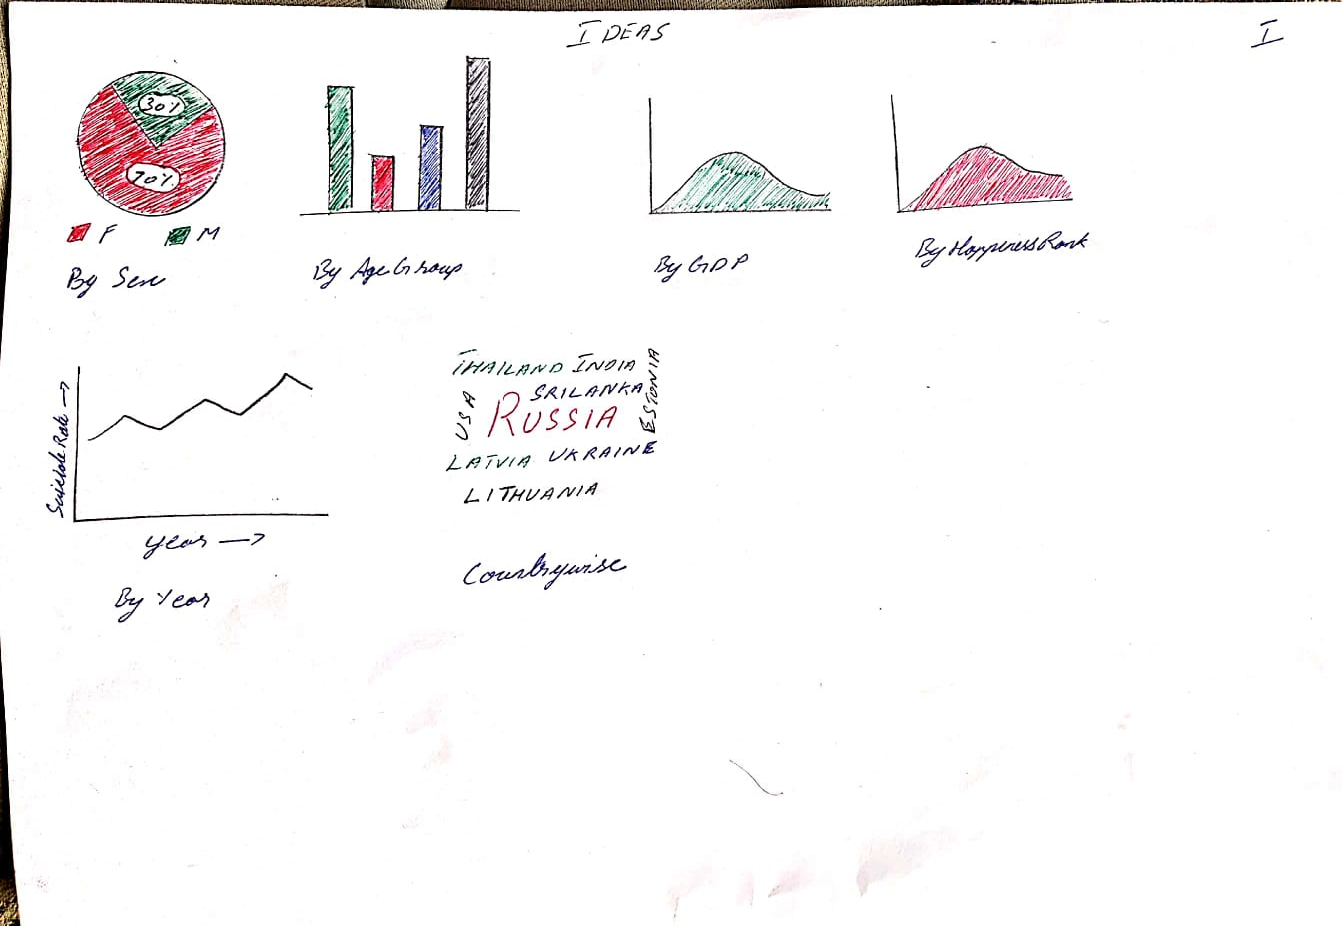 IDEAS
I
30%
70%
F M
By Sex
By Age Group
By GDP
By Happiness Rank
Suicide Rate →
Year →
By Year
THAILAND INDIA
ESTONIA
SRILANKA
USA
RUSSIA
LATVIA UKRAINE
LITHUANIA
Countrywise